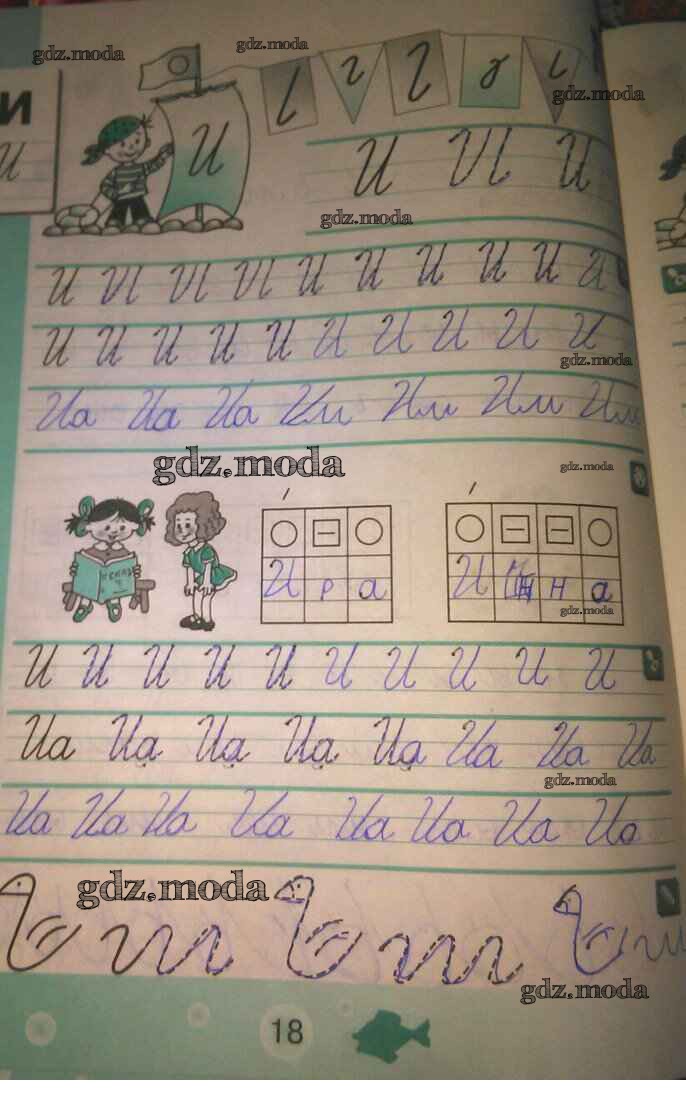 gdz.moda
gdz.moda
gdz.moda
И
И
И
И И И
gdz.moda
И И И И И И И И И И
И И И И И И И И И И
gdz.moda
Иа Иа Иа Ии Ии Ии Ии
gdz.moda
gdz.moda
Ира
И н а
gdz.moda
И И И И И И И И И И
Иа Иа Иа Иа Иа Иа Иа Иа
gdz.moda
Иа Иа Иа Иа Иа Иа Иа Иа
gdz.moda
gdz.moda
18